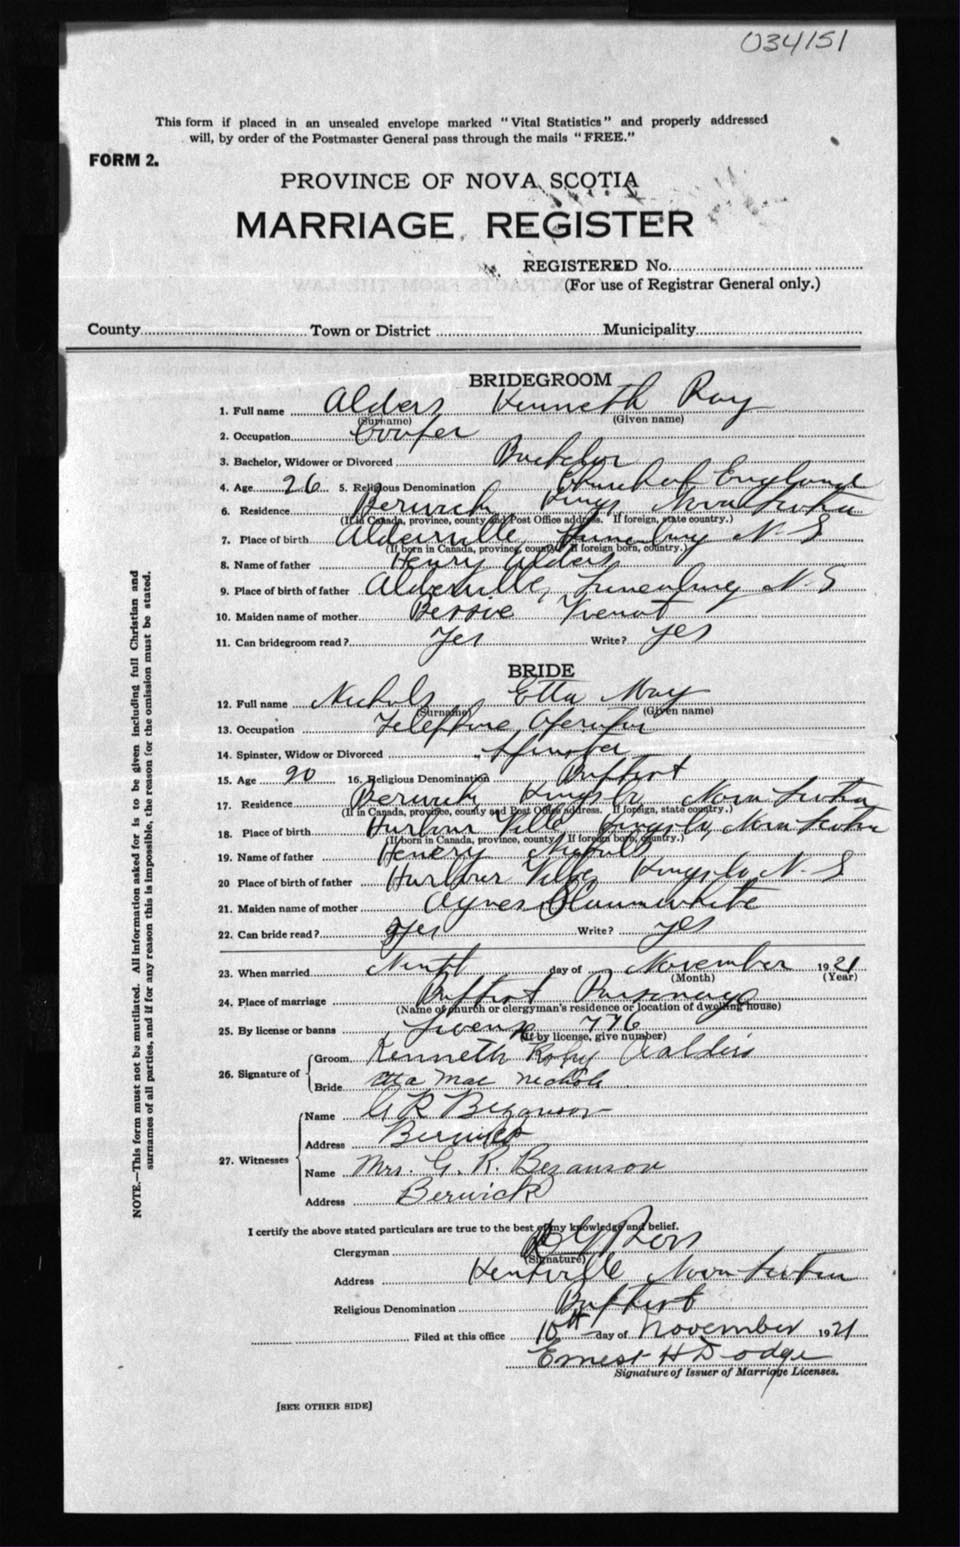 034151
This form if placed in an unsealed envelope marked "Vital Statistics" and properly addressed
will, by order of the Postmaster General pass through the mails "FREE."
FORM 2.
PROVINCE OF NOVA SCOTIA
MARRIAGE REGISTER
REGISTERED No.
(For use of Registrar General only.)
County Town or District Municipality
BRIDEGROOM
1. Full name Alders Kenneth Roy
(Surname) (Given name)
2. Occupation Cooper
3. Bachelor, Widower or Divorced Bachelor
4. Age 26 5. Religious Denomination Church of England
6. Residence Berwick Kings Nova Scotia
(If in Canada, province, county and Post Office address. If foreign, state country.)
7. Place of birth Alderville Lunenburg N-S
(If born in Canada, province, county. If foreign born, country.)
8. Name of father Henry Alders
9. Place of birth of father Alderville, Lunenburg N.S
10. Maiden name of mother Bessie Veinot
11. Can bridegroom read? Yes Write? yes
BRIDE
12. Full name Nichols Etta May
(Surname) (Given name)
13. Occupation Telephone Operator
14. Spinster, Widow or Divorced Spinster
15. Age 20 16. Religious Denomination Baptist
17. Residence Berwick Kings Co Nova Scotia
(If in Canada, province, county and Post Office address. If foreign, state country.)
18. Place of birth Ville Kings Co, Nova Scotia
(If born in Canada, province, county. If foreign born, country.)
19. Name of father Henery Nichols
20 Place of birth of father Ville Kings Co N-S
21. Maiden name of mother Agnes
22. Can bride read? Yes Write? yes
23. When married Ninth day of November 1921
(Month) (Year)
24. Place of marriage Baptist Parsonage
(Name of church or clergyman's residence or location of dwelling house)
25. By license or banns License 776
(If by license, give number)
26. Signature of Groom Kenneth Aalders
Bride Etta Mae Nichols
27. Witnesses Name G R Bezanson
Address Berwick
Name Mrs. G. R. Bezanson
Address Berwick
I certify the above stated particulars are true to the best of my knowledge and belief.
Clergyman Ross
(Signature)
Address Kentville Nova Scotia
Religious Denomination Baptist
Filed at this office 10th day of November 1921
Ernest H Dodge
Signature of Issuer of Marriage Licenses.
[SEE OTHER SIDE]
NOTE.—This form must not be mutilated. All information asked for is to be given including full Christian and
surnames of all parties, and if for any reason this is impossible, the reason for the omission must be stated.